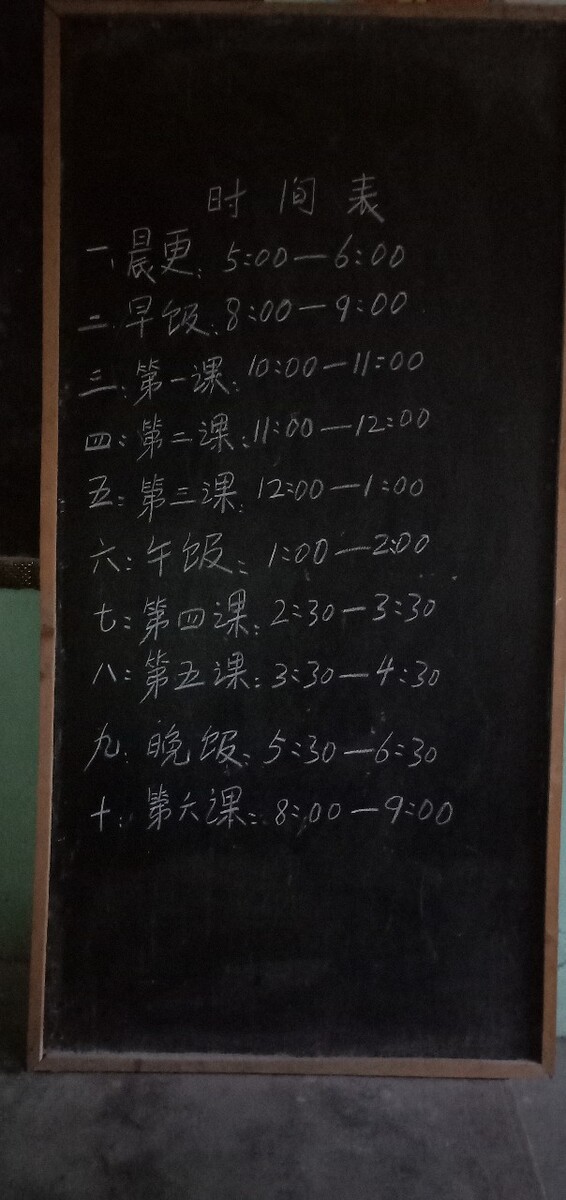 时间表
一、晨更：5:00—6:00
二：早饭：8:00—9:00
三：第一课：10:00—11:00
四：第二课：11:00—12:00
五：第三课：12:00—1:00
六：午饭：1:00—2:00
七：第四课：2:30—3:30
八：第五课：3:30—4:30
九：晚饭：5:30—6:30
十：第六课：8:00—9:00